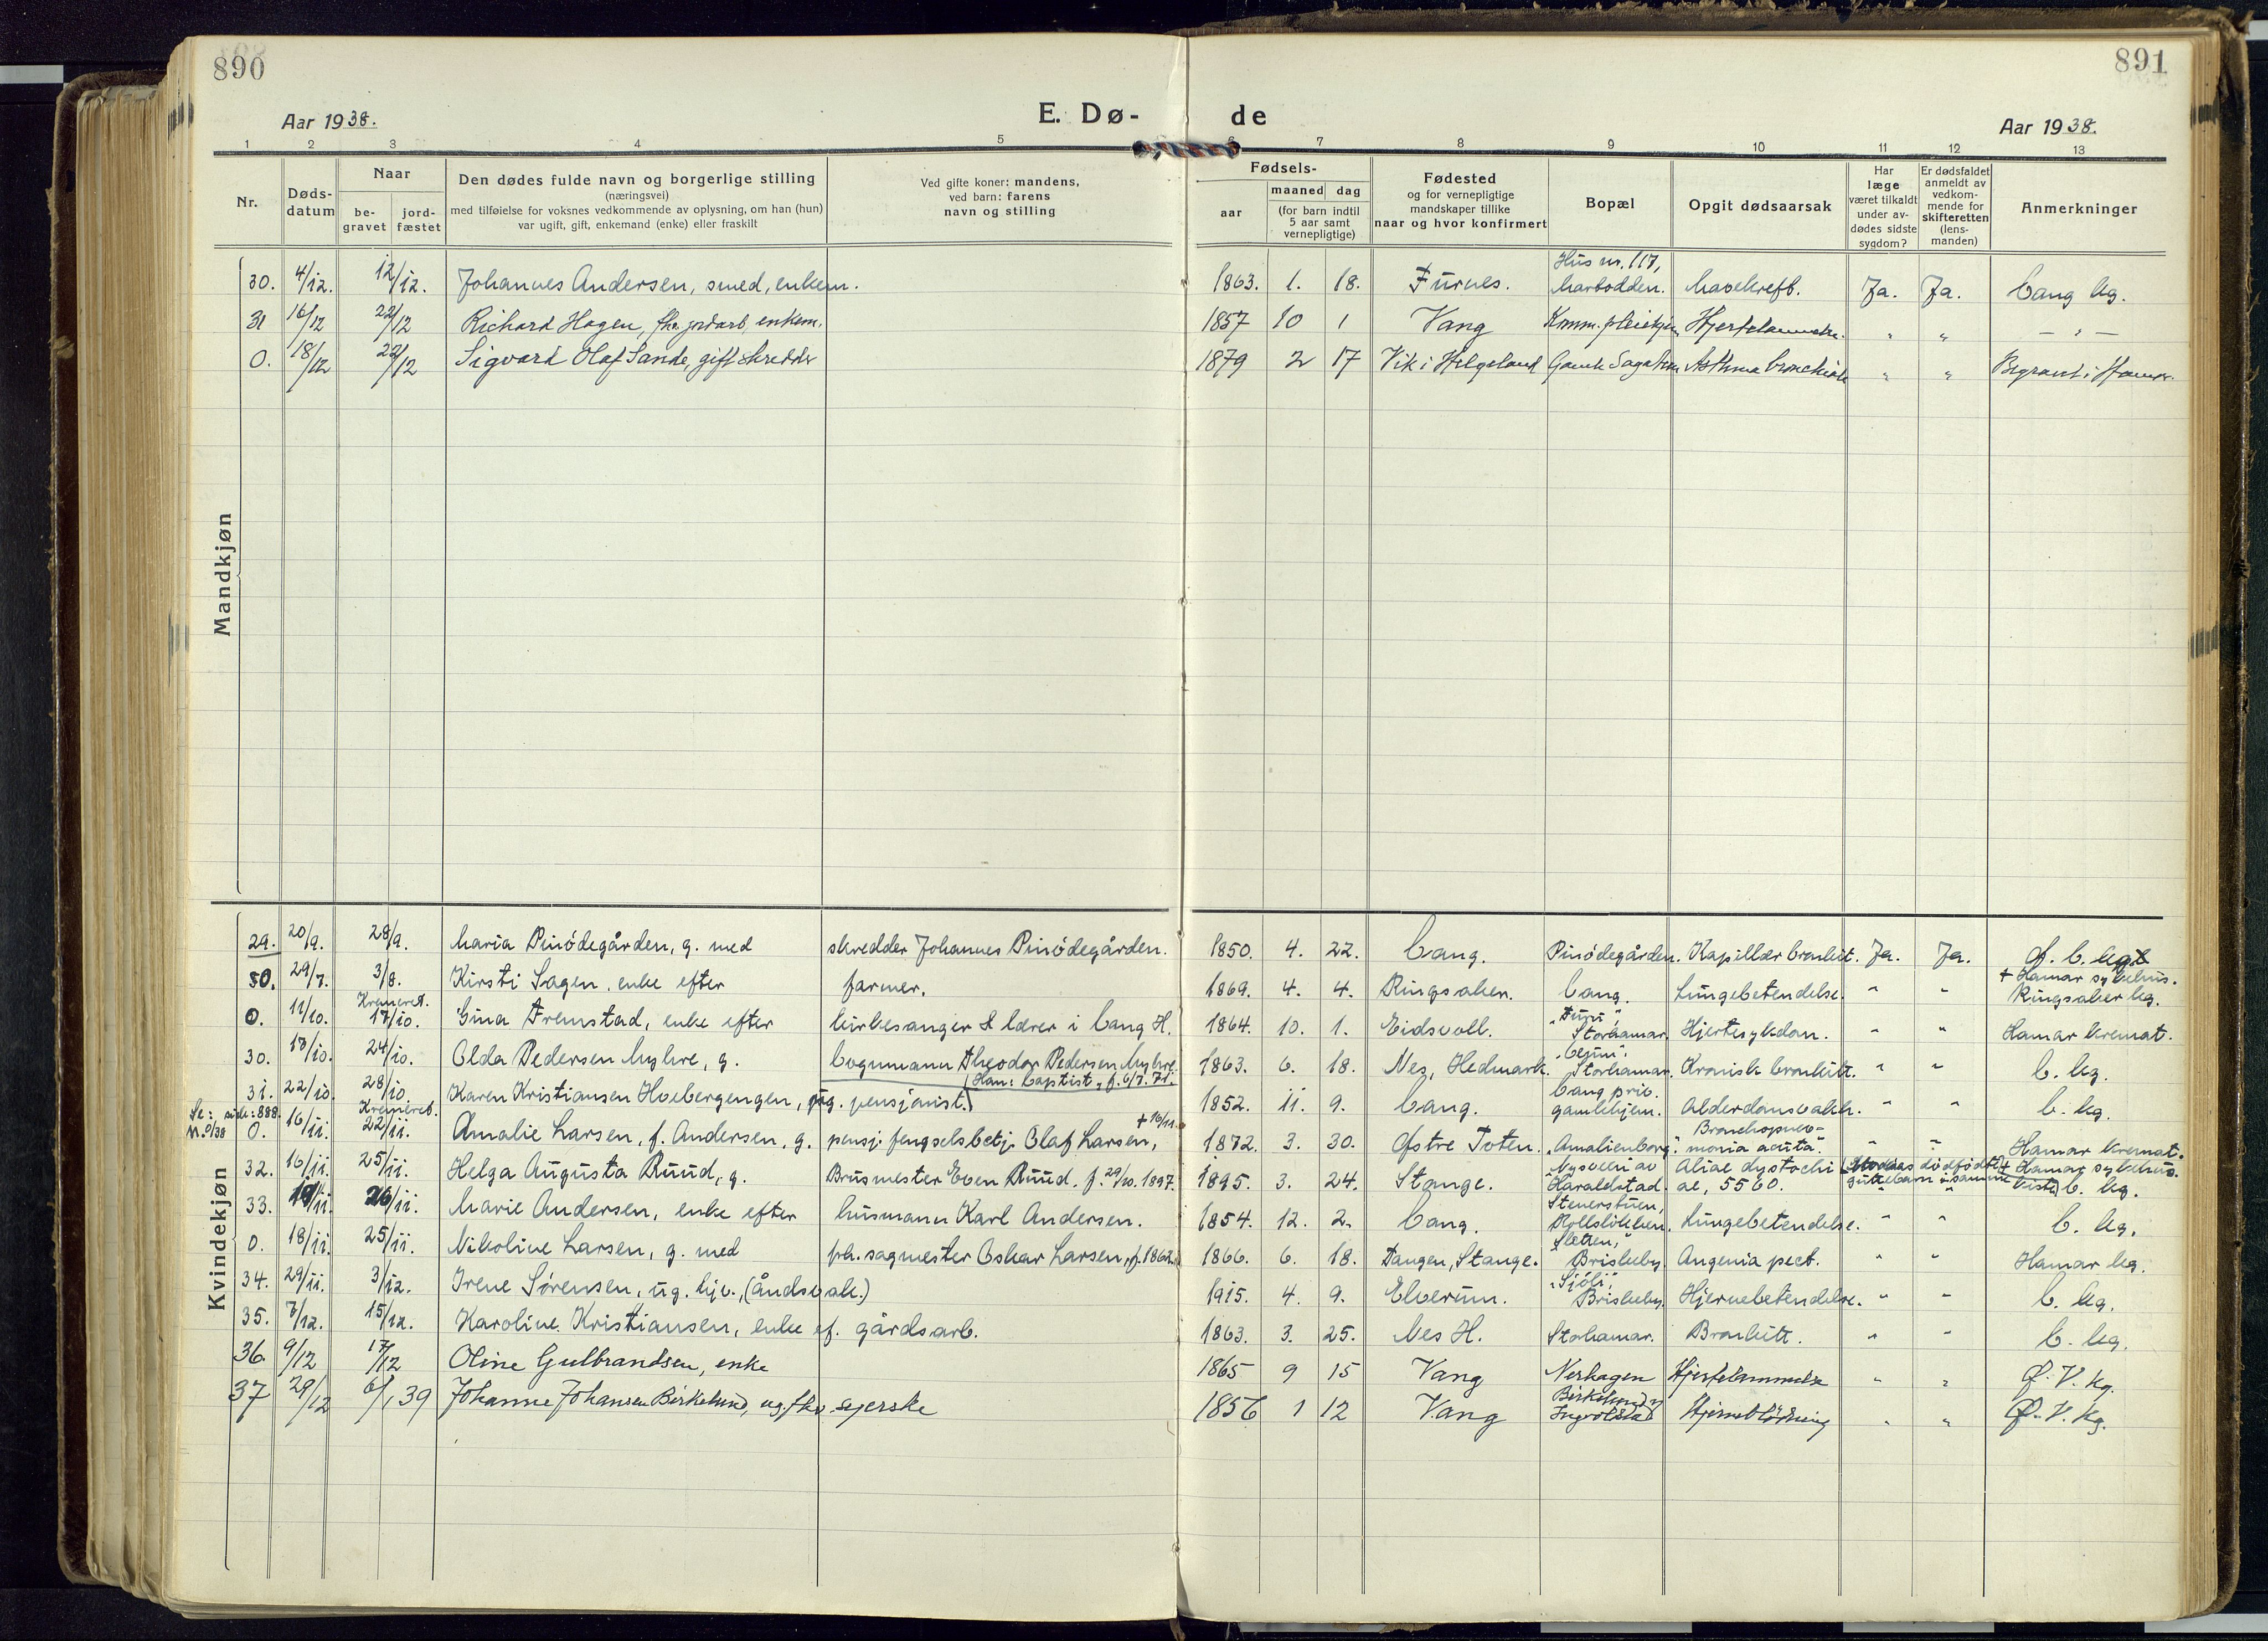 890
891
Aar 1938.
E. Dø-
de
Aar 1938.
1 2 3 4 5 6 7 8 9 10 11 12 13
Nr.
Døds-
datum
Naar
be-
gravet
jord-
fæstet
Den dødes fulde navn og borgerlige stilling
(næringsvei)
med tilføielse for voksnes vedkommende av oplysning, om han (hun)
var ugift, gift, enkemand (enke) eller fraskilt
Ved gifte koner: mandens,
ved barn: farens
navn og stilling
Fødsels-
aar
maaned dag
(for barn indtil
5 aar samt
vernepligtige)
Fødested
og for vernepligtige
mandskaper tillike
naar og hvor konfirmert
Bopæl
Opgit dødsaarsak
Har
læge
været tilkaldt
under av-
dødes sidste
sygdom?
Er dødsfaldet
anmeldt av
vedkom-
mende for
skifteretten
(lens-
manden)
Anmerkninger
Mandkjøn
Hus nr. 117,
30. 4/12. 12/12. Johannes Andersen, smed, enkem. 1863. 1. 18. Furnes. Ja. Ja. Vang kg.
31 16/12 22/12 Richard Hagen, fhv. jordarb, enkem. 1857 10 1 Vang Komm. pleiehjem Hjertelammelse. " " — " —
0. 18/12 22/12 Sigvard Olaf Sande, gift skredder 1879 2 17 Vik i Helgeland Asthma bronchiale " " Begravet i Hamar.
Kvindekjøn
29. 20/9. 28/9. Maria Pinödegården, g. med skredder Johannes Pinödegården. 1850. 4. 22. Vang. Pinödegården. Kapillær bronkit. Ja. Ja.
+ Hamar sykehus.
30. 29/7. 3/8. Kirsti Sagen, enke efter farmer. 1869. 4. 4. Ringsaker. Vang. Lungebetendelse. " " Ringsaker kg.
Kremeret.
0. 11/10. 17/10. Gina Fremstad, enke efter kirkesanger & lærer i Vang H. 1864. 10. 1. Eidsvoll. Storhamar. Hjertesykdom. " " Hamar kremat.
30. 18/10. 24/10. Olda Pedersen Myhre, g. vognmann Theodor Pedersen Myhre. 1863. 6. 18. Nes, Hedmark. Storhamar. Kronisk bronkitt. " " V. kg.
(Han: baptist, f. 6/7. 71.)
Vang priv.
31. 22/10. 28/10. Karen Kristiansen Hoebergengen, ug. pensjonist. 1852. 11. 9. Vang. gamlehjem. Alderdomsvakh. " " V. kg.
Se: side: 888. Kremeret. + 10/11. Bronchopneu-
N. 0/38 0. 16/11. 22/11. Amalie Larsen, f. Andersen, g. pensj. fengselsbetj. Olaf Larsen, 1872. 3. 30. Østre Toten. "Amalienborg". monia acuta. " " Hamar kremat.
32. 16/11. 25/11. Helga Augusta Ruud, g. Brusmester Even Ruud. f. 29/10. 1897. 1895. 3. 24. Stange. Haraldstad. Aliae dystochiae, 5560. + Hamar sykehus. V. kg.
33. 26/11. Marie Andersen, enke efter husmann Karl Andersen. 1854. 12. 2. Vang. Lungebetendelse. " " V. kg.
"Sletten,"
0. 18/11. 25/11. Nikoline Larsen, g. med fhv. sagmester Oskar Larsen, f. 1862. 1866. 6. 18. Tangen, Stange. Briskeby Angenia pect. " " Hamar kg.
"Sjöli",
34. 29/11. 3/12. Irene Sørensen, ug. hjv., (åndsvak.) 1915. 4. 9. Elverum. Briskeby. Hjernebetendelse. " " V. kg.
35. 7/12. 15/12. Karoline Kristiansen, enke ef. gårdsarb. 1863. 3. 25. Nes H. Storhamar. Bronkitt. " " V. kg.
36 9/12 17/12 Oline Gulbrandsen, enke 1865 9 15 Vang Nerhagen Hjertelammelse " " Ø. V. kg.
37 29/12 6/1 39 Johanne Johansen Birkelund, ug. fhv. syerske 1856 1 12 Vang Birkelund Ingvoldstad Hjerneblödning " " Ø. V. kg.